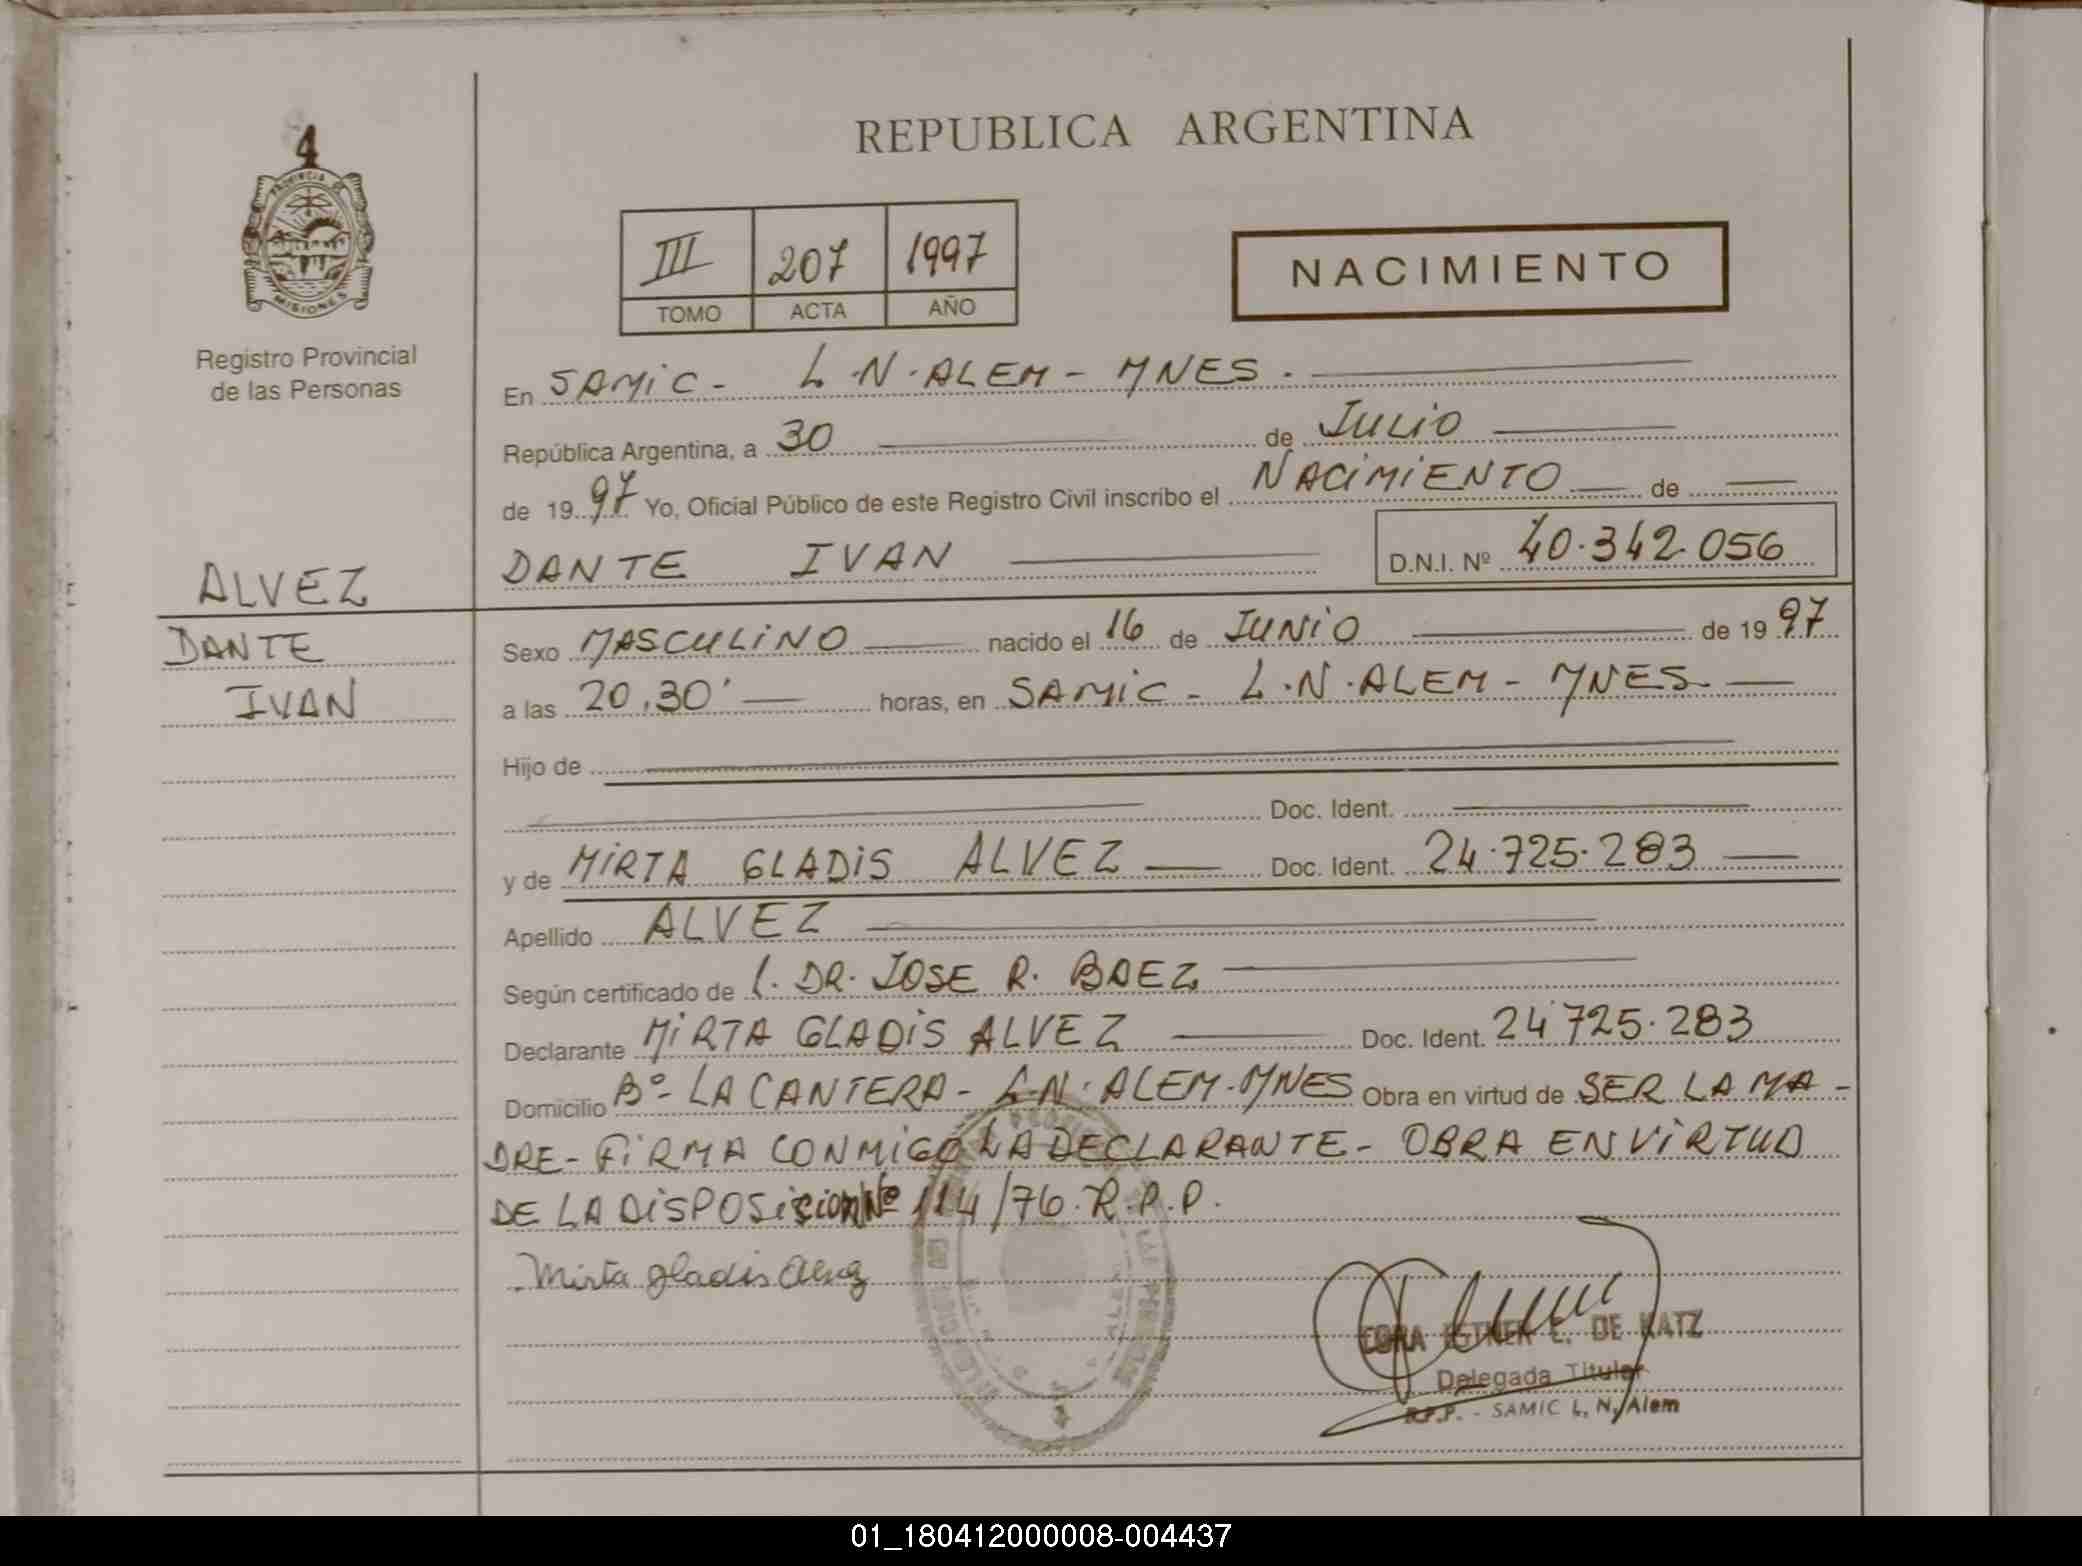 4
PROVINCIA DE
MISIONES
Registro Provincial
de las Personas
REPUBLICA ARGENTINA
III 207 1997
TOMO ACTA AÑO
NACIMIENTO
En SAMIC - L.N. ALEM - MNES.
República Argentina, a 30 de JULIO
de 1997 Yo, Oficial Público de este Registro Civil inscribo el NACIMIENTO de
DANTE IVAN D.N.I. Nº 40.342.056
ALVEZ
DANTE
IVAN
Sexo MASCULINO nacido el 16 de JUNIO de 1997
a las 20,30' horas, en SAMIC - L.N. ALEM - MNES.
Hijo de
Doc. Ident.
y de MIRTA GLADIS ALVEZ Doc. Ident. 24.725.283
Apellido ALVEZ
Según certificado de l. DR. JOSE R. BAEZ
Declarante MIRTA GLADIS ALVEZ Doc. Ident. 24 725.283
Domicilio Bº - LA CANTERA - L.N. ALEM - MNES Obra en virtud de SER LA MA-
DRE - FIRMA CONMIGO LA DECLARANTE - OBRA EN VIRTUD
DE LA DISPOSICION Nº 114/76. R.P.P.
Mirta gladis Alvez
ESTHER E. DE KATZ
Delegada Titular
R.P.P. - SAMIC L. N. Alem
01_180412000008-004437